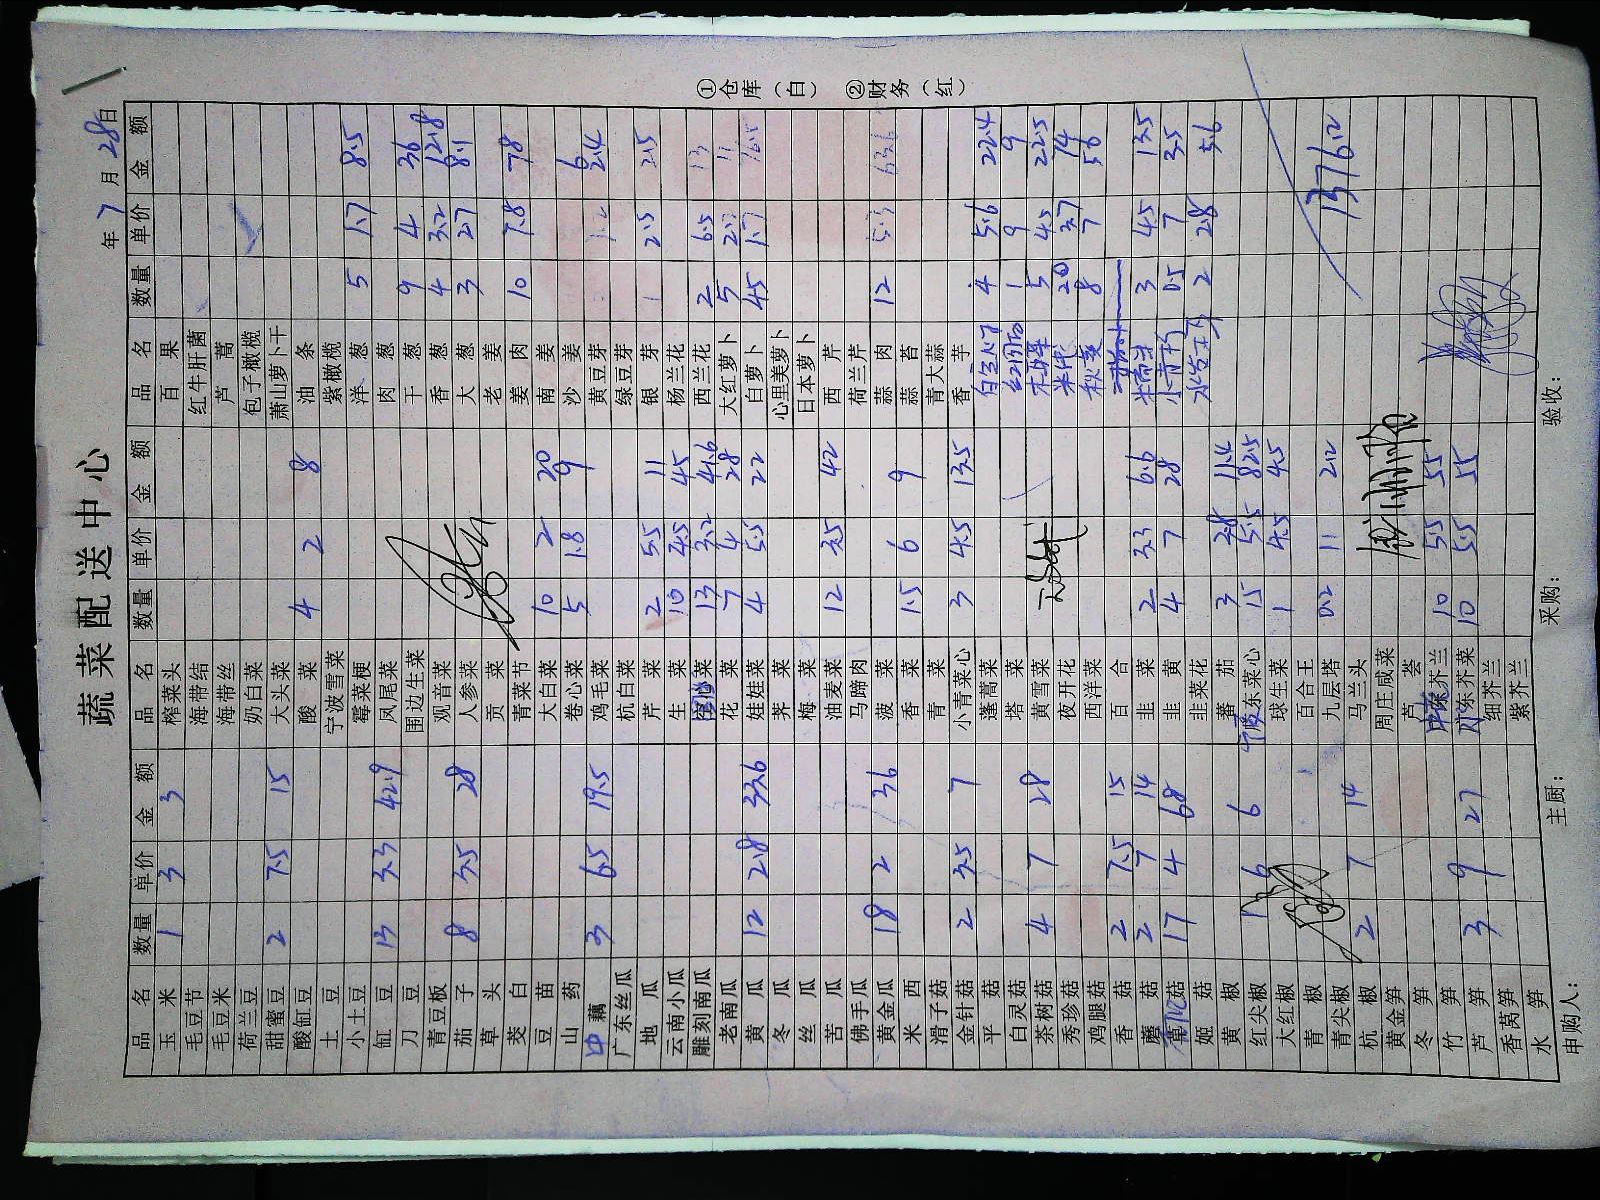 蔬菜配送中心
年 7 月 28 日
品名 数量 单价 金额 品名 数量 单价 金额 品名 数量 单价 金额
玉米 1 3 3 榨菜头 百果
毛豆节 海带结 红牛肝菌
毛豆米 海带丝 芦蒿
荷兰豆 奶白菜 包子橄榄
甜蜜豆 2 7.5 15 大头菜 萧山萝卜干
酸缸豆 酸菜 4 2 8 油条
土豆 宁波雪菜 紫橄榄
小土豆 霉菜梗 洋葱 5 1.7 8.5
缸豆 13 3.3 42.9 凤尾菜 肉葱
刀豆 围边生菜 干葱 9 4 36
青豆板 观音菜 香葱 4 3.2 12.8
茄子 8 3.5 28 人参菜 大葱 3 2.7 8.1
草头 贡菜 老姜
茭白 青菜节 姜肉 10 7.8 78
豆苗 大白菜 10 2 20 南姜
山药 卷心菜 5 1.8 9 沙姜 6
中藕 3 6.5 19.5 鸡毛菜 黄豆芽 1.2 2.4
广东丝瓜 杭白菜 绿豆芽
地瓜 芹菜 2 5.5 11 银芽 1 2.5 2.5
云南小瓜 生菜 10 4.5 45 杨兰花
雕刻南瓜 空心菜 13 3.2 41.6 西兰花 2 6.5 13
老南瓜 花菜 7 4 28 大红萝卜 5 2.2 11
黄瓜 12 2.8 33.6 娃娃菜 4 5.5 22 白萝卜 45 1.7 76.5
冬瓜 荠菜 心里美萝卜
丝瓜 梅菜 日本萝卜
苦瓜 油麦菜 12 3.5 42 西芹
佛手瓜 马蹄肉 荷兰芹
黄金瓜 18 2 36 菠菜 蒜肉 12 5.3 63.6
米西 香菜 1.5 6 9 蒜苔
滑子菇 青菜 青大蒜
金针菇 2 3.5 7 小青菜心 3 4.5 13.5 香芋
平菇 蓬蒿菜 4 5.6 22.4
白灵菇 塔菜 1 9 9
茶树菇 4 7 28 黄雪菜 5 4.5 22.5
秀珍菇 夜开花 20 3.7 74
鸡腿菇 西洋菜 秋葵 8 7 56
香菇 2 7.5 15 百合
蘑菇 2 7 14 韭菜 2 3.3 6.6 3 4.5 13.5
草菇 17 4 68 韭黄 4 7 28 0.5 7 3.5
姬菇 韭菜花 2 2.8 5.6
黄椒 蕃茄 3 3.8 11.4
红尖椒 1 6 6 广东菜心 15 5.5 82.5
大红椒 球生菜 1 4.5 4.5
青椒 百合王
青尖椒 九层塔 0.2 11 2.2 1376.12
杭椒 2 7 14 马兰头
黄金笋 周庄咸菜
冬笋 芦荟
竹笋 芥兰 10 5.5 55
芦笋 3 9 27 广东芥菜 10 5.5 55
香莴笋 细芥兰
水笋 紫芥兰
申购人： 主厨： 采购： 验收：
①仓库（白） ②财务（红）